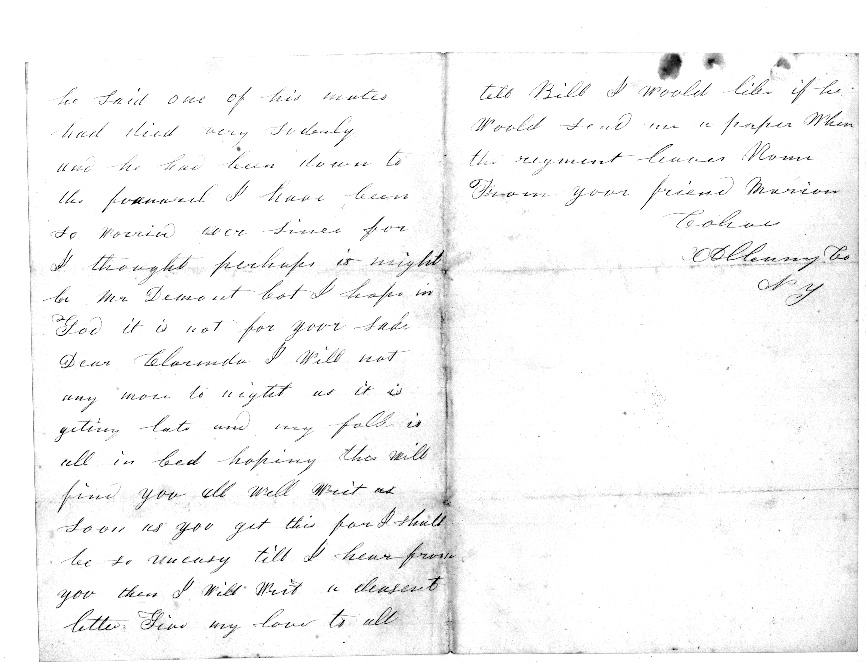 he said one of his mates
had died very sodenly
and he had been down to
the I have been
so worrid ever since for
I thought perhaps is might
be Mr Demont bot I hope in
God it is not for yoor sake
Dear Clarinda I Will not
any more to night as it is
geting late and my folk is
all in bed hoping this will
find you all Well Writ as
soon as you get this for I shall
be so uneasy till I hear from
you then I Will Writ a deasent
letter Give my love to all
tell Bill I Would like if he
Would send me a paper When
the regment leaves Rome
From your friend Marion
Cohoes
Albany Co
N Y